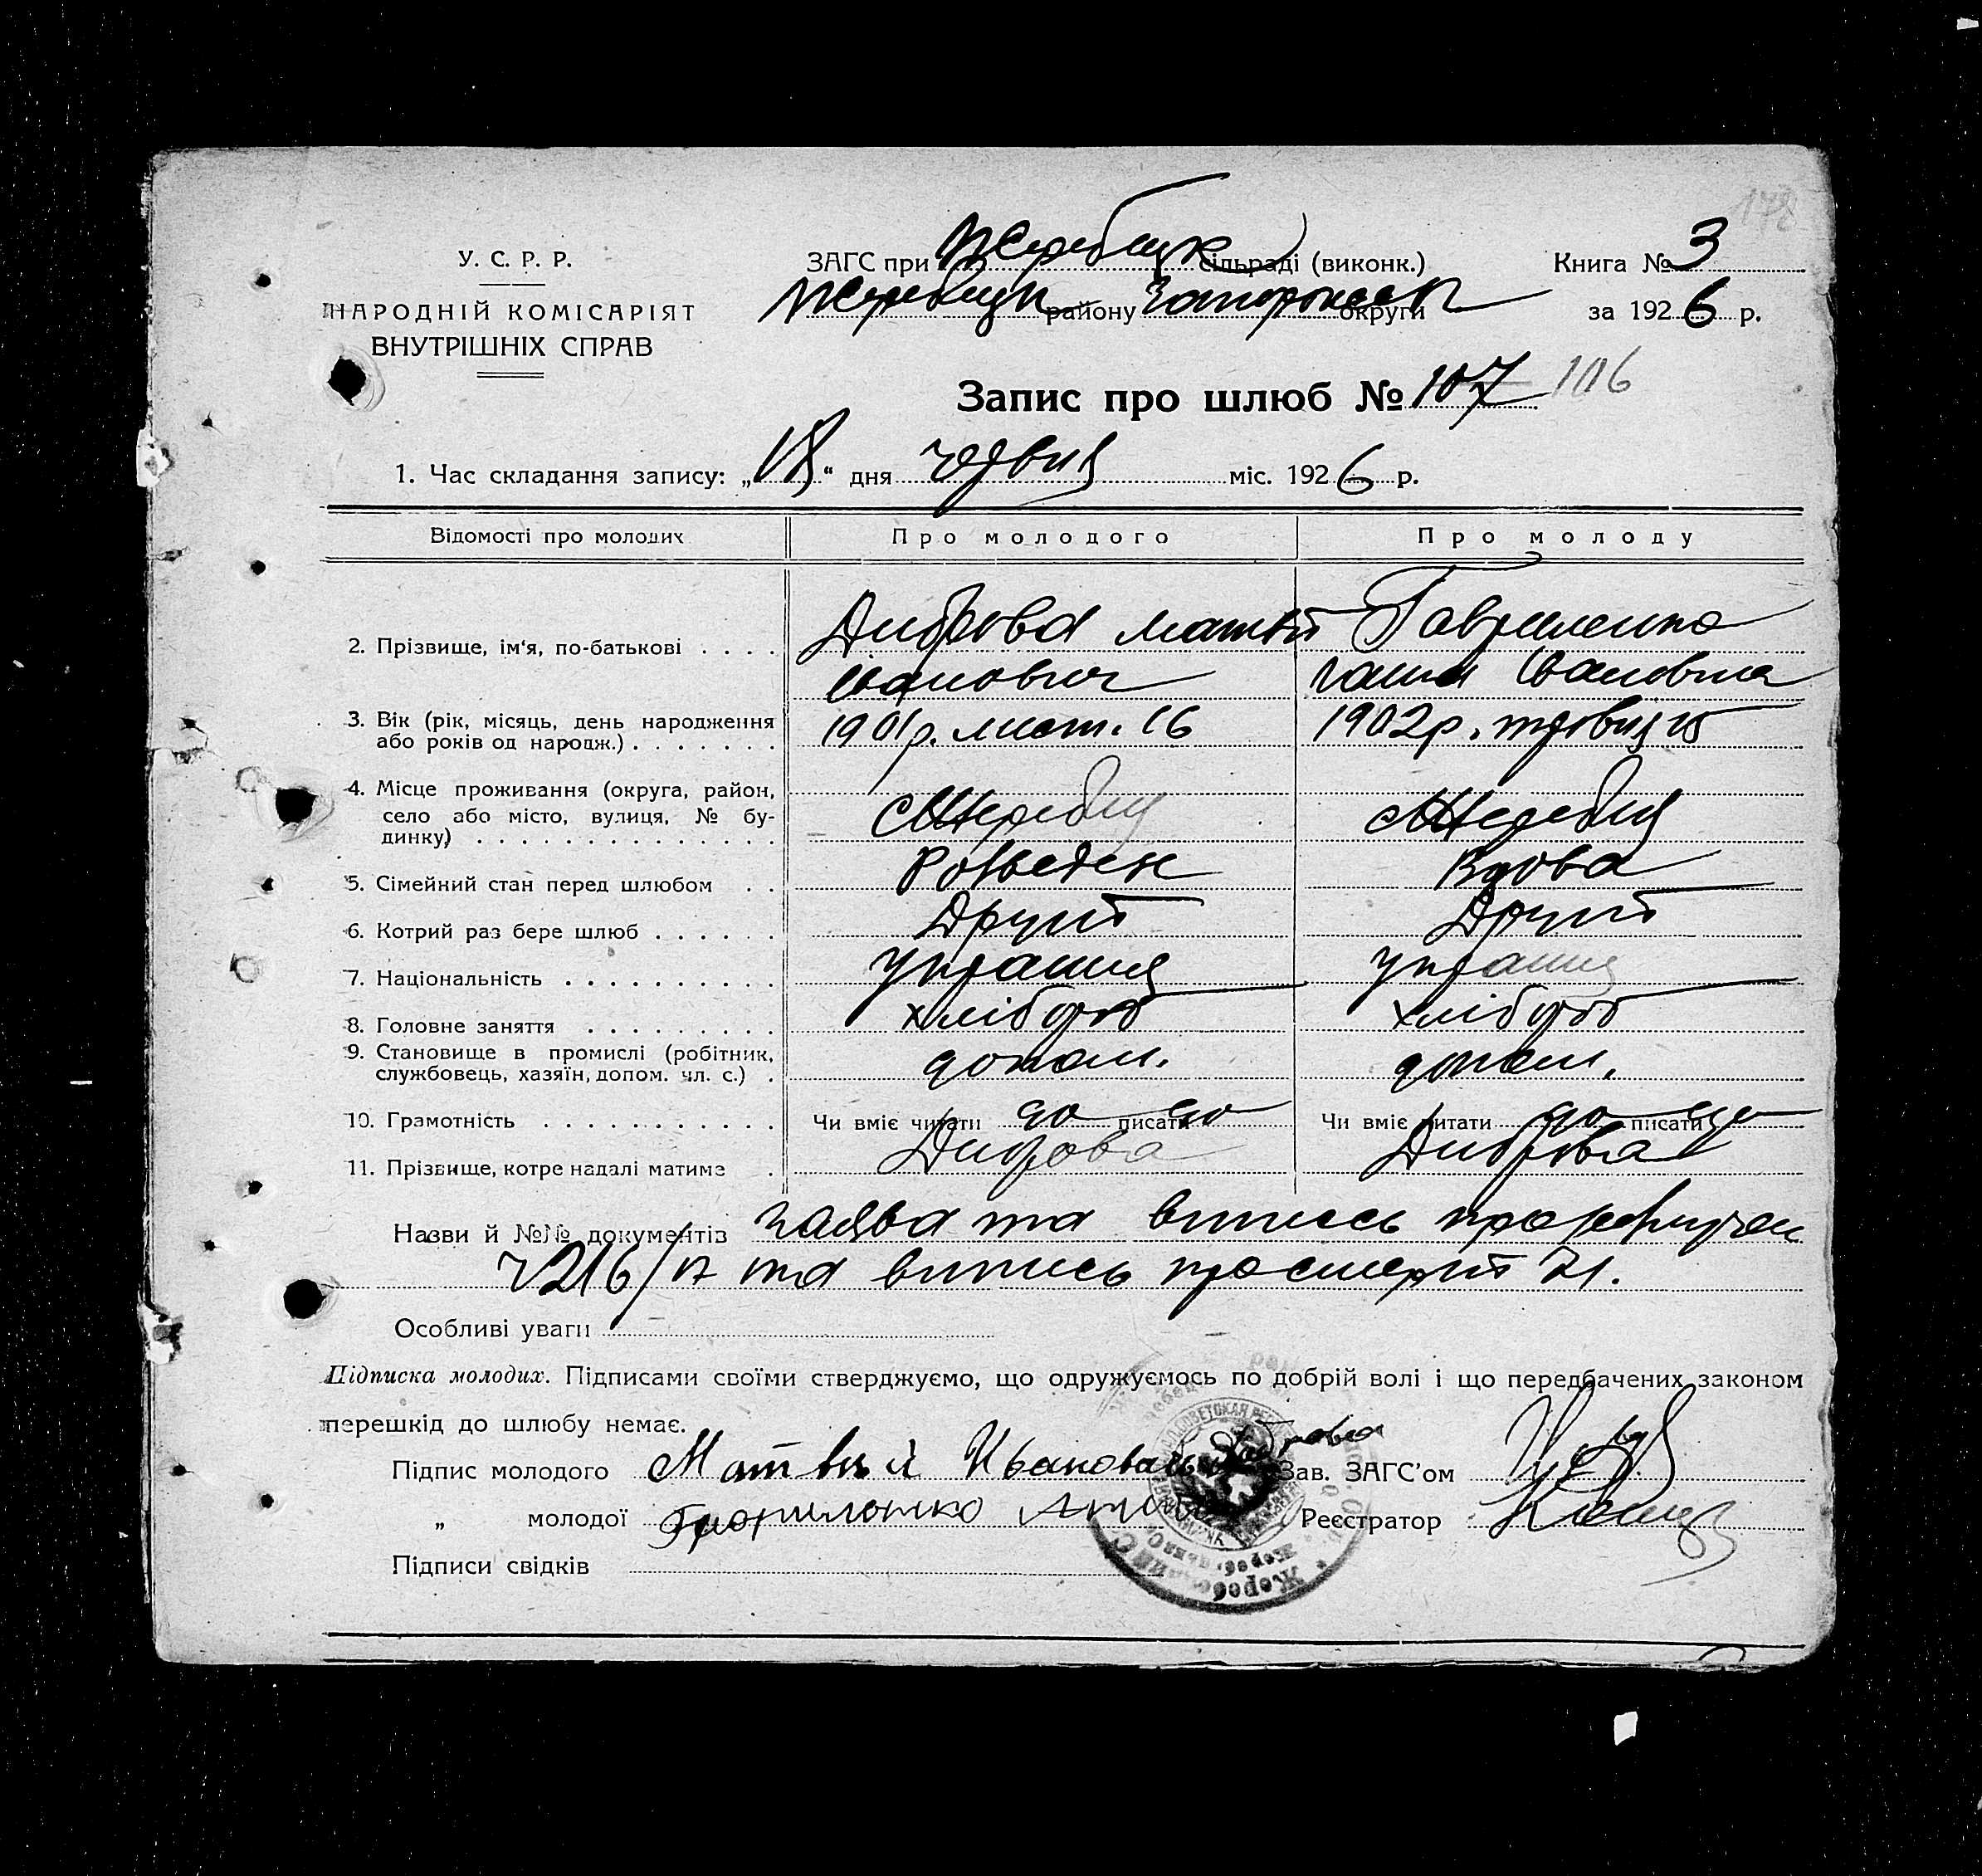 178
У. С. Р. Р.
НАРОДНІЙ КОМІСАРІЯТ
ВНУТРІШНІХ СПРАВ
ЗАГС при Жеребецк сільраді (виконк.)
Жеребецк району Запорожск округи
Книга № 3
за 1926 р.
Запис про шлюб № 107 106
1. Час складання запису: „18“ дня червня міс. 1926 р.
Відомості про молодих
Про молодого
Про молоду
2. Прізвище, ім'я, по-батькові . . . .
Диброва Матвій
Иванович
Гавриленко
Ганна Ивановна
3. Вік (рік, місяць, день народження
або років од народж.) . . . . . . .
1901р. лист. 16
1902р. травня 15
4. Місце проживання (округа, район,
село або місто, вулиця, № бу-
динку) . . . . . . . . . . . . . .
с Жеребец
с Жеребец
5. Сімейний стан перед шлюбом . .
Розведен
Вдова
6. Котрий раз бере шлюб . . . . . .
Другий
Другий
7. Національність . . . . . . . . . .
Украинц
Украинц
8. Головне заняття . . . . . . . . .
хлібороб
хлібороб
9. Становище в промислі (робітник,
службовець, хазяїн, допом. чл. с.) .
допом.
допом.
10. Грамотність . . . . . . . . . . .
Чи вміє читати да писати да
Чи вміє читати да писати да
11. Прізвище, котре надалі матиме .
Диброва
Диброва
Назви й №№ документів заява та випись про
216/17 та випись про смерть 21.
Особливі уваги
Підписка молодих. Підписами своїми стверджуємо, що одружуємось по добрій волі і що передбачених законом
перешкід до шлюбу немає.
Підпис молодого Матвій Иванович Диброва
Зав. ЗАГС'ом
„ молодої Гавриленко
Реєстратор
Підписи свідків